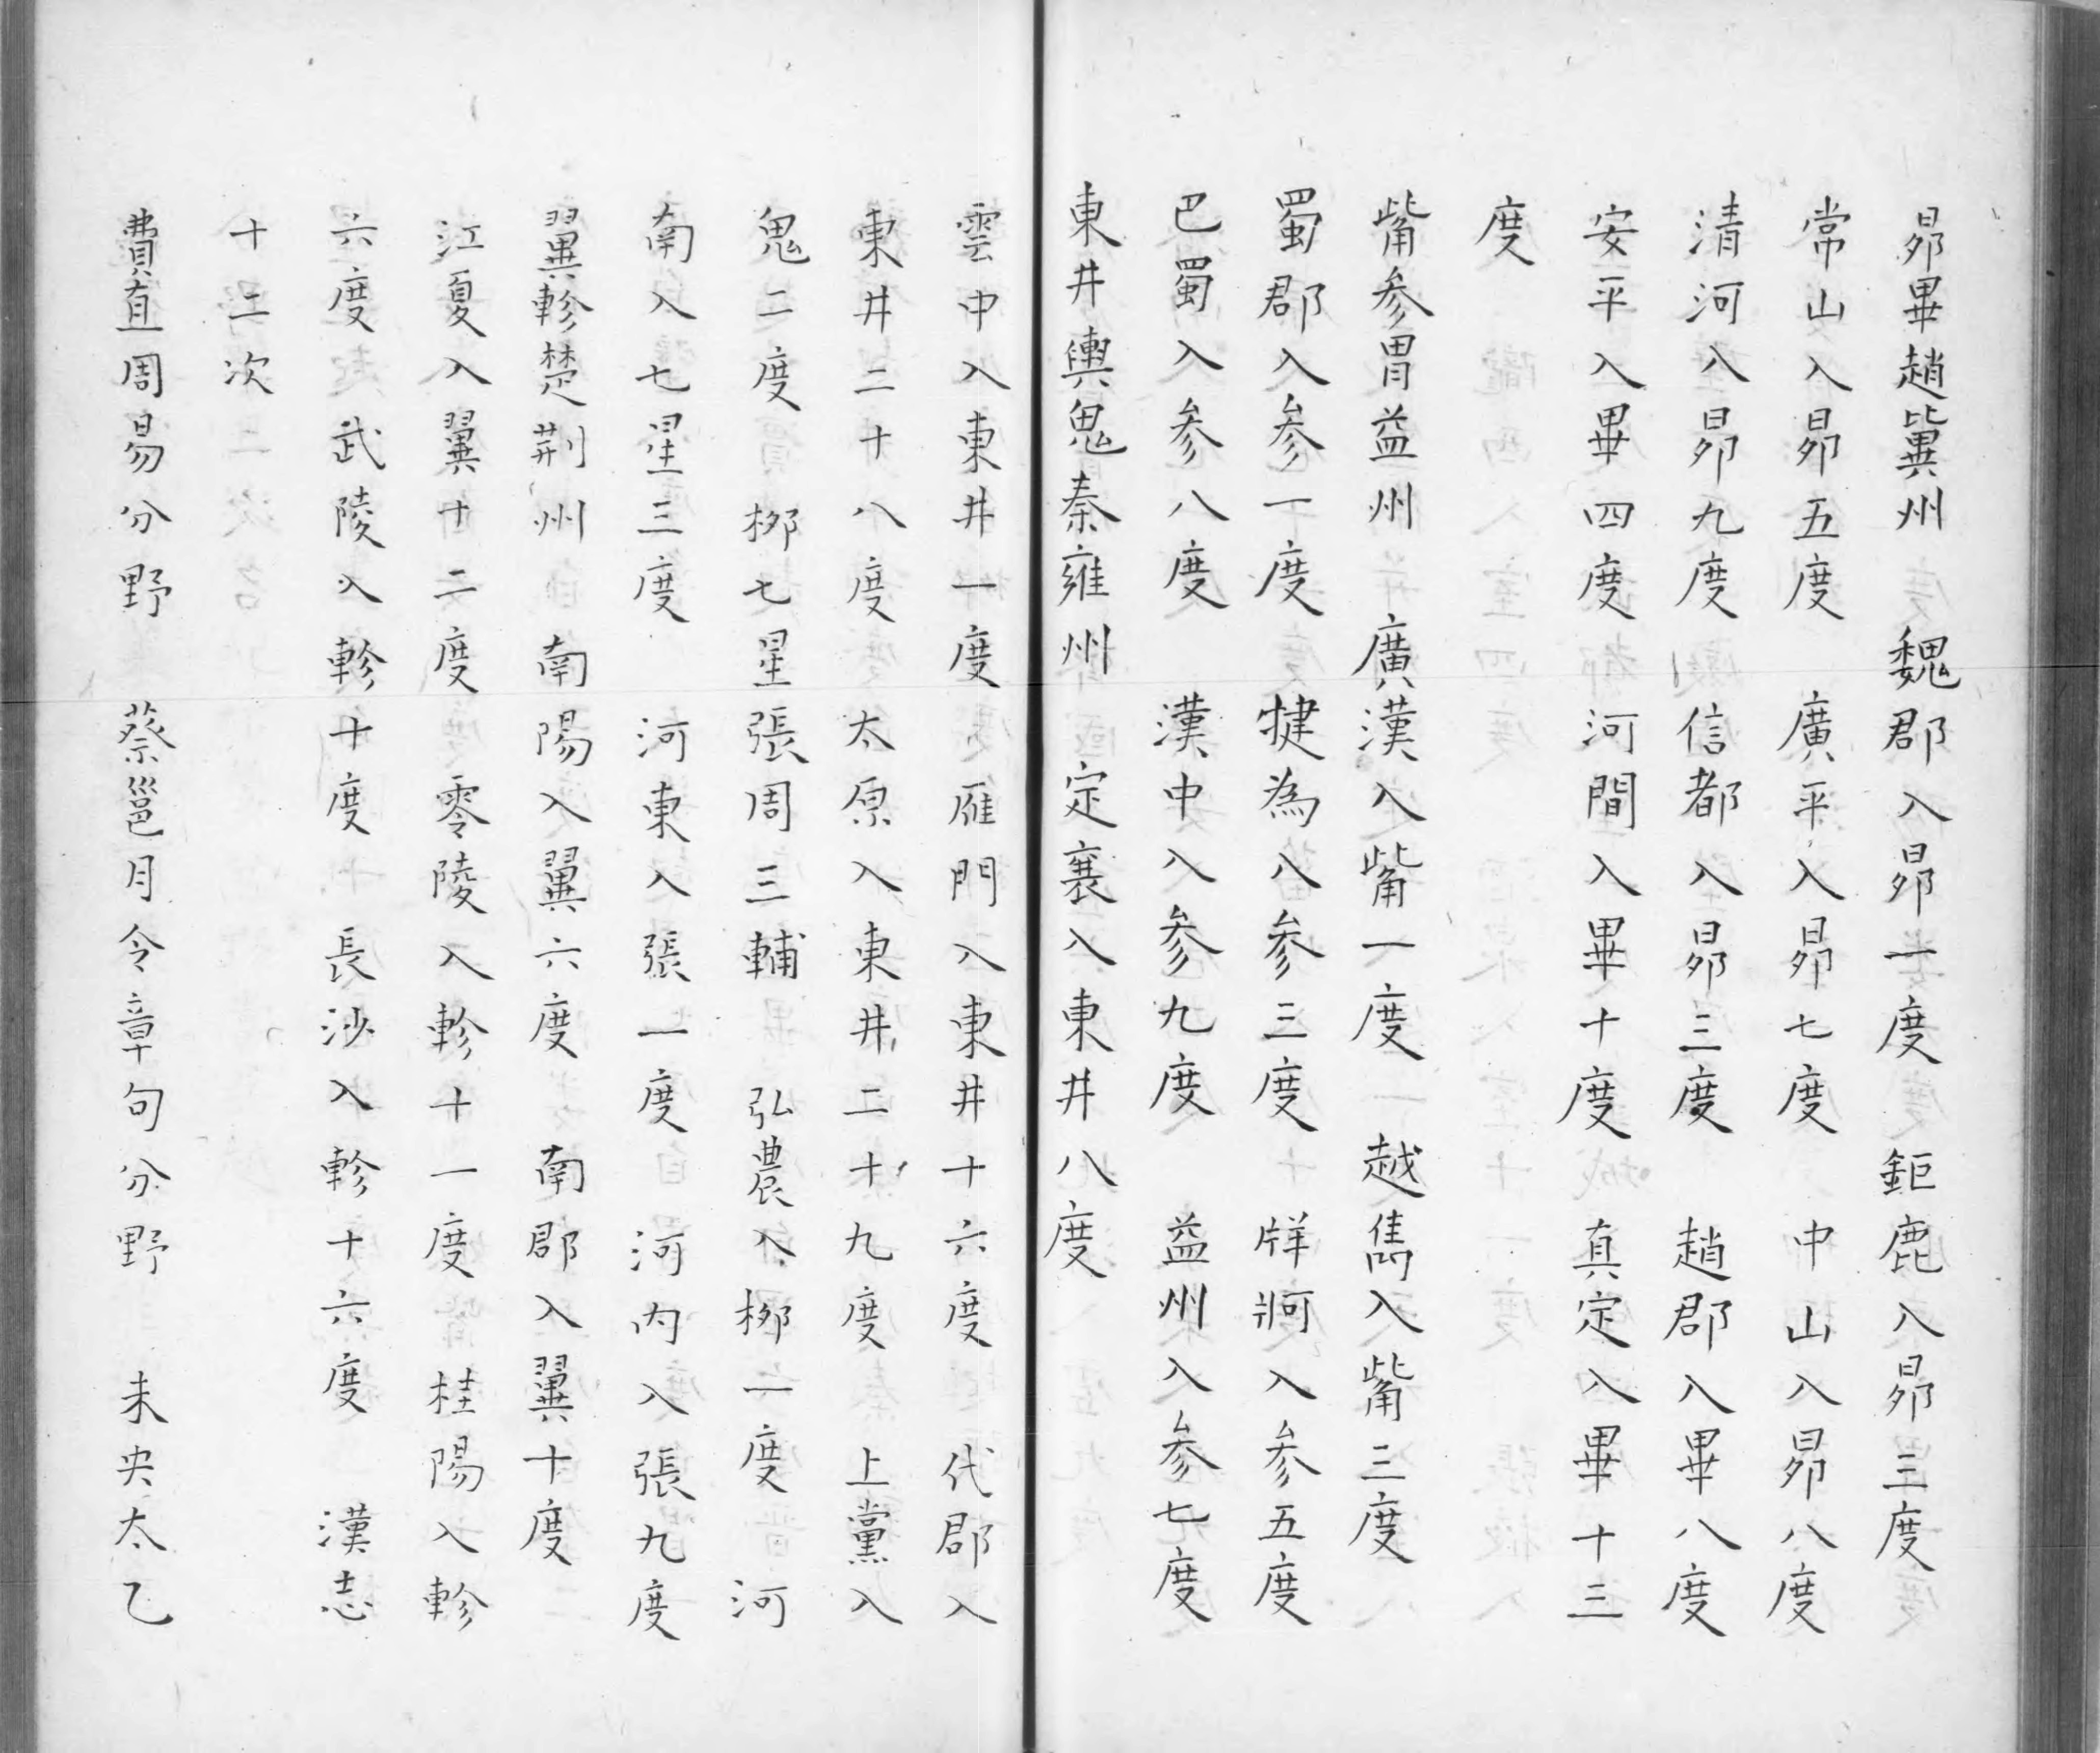 昴畢趙冀州　魏郡入昴一度　鉅鹿入昴三度
常山入昴五度　廣平入昴七度　中山入昴八度
清河入昴九度　信都入昴三度　趙郡入畢八度
安平入畢四度　河間入畢十度　真定入畢十三
度
觜參胃益州　廣漢入觜一度　越雋入觜三度
蜀郡入參一度　犍為入參三度　牂牁入參五度
巴蜀入參八度　漢中入參九度　益州入參七度
東井輿鬼秦雍州　定襄入東井八度
雲中入東井一度　雁門入東井十六度　代郡入
東井二十八度　太原入東井二十九度　上黨入
鬼二度　栁七星張周三輔　弘農入栁一度　河
南入七星三度　河東入張一度　河內入張九度
翼軫楚荆州　南陽入翼六度　南郡入翼十度
江夏入翼十二度　零陵入軫十一度　桂陽入軫
六度　武陵入軫十度　長沙入軫十六度　漢志
十二次
費直周易分野　蔡邕月令章句分野　未央太乙